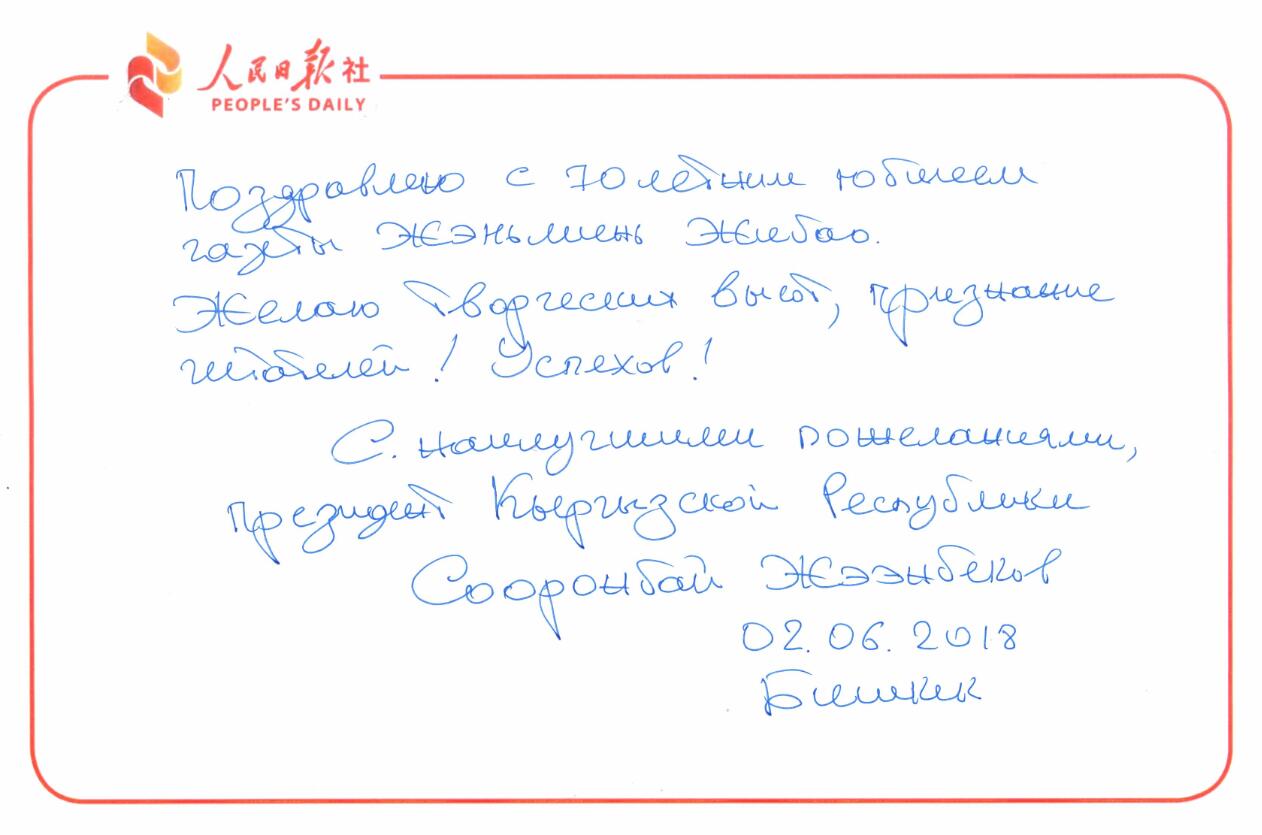 人民日报社
PEOPLE'S DAILY
Поздравляю с 70летним юбилеем
газеты Жэньминь Жибао.
Желаю творческих высот, признание
читателей! Успехов!
С. наилучшими пожеланиями,
президент Кыргызской Республики
Сооронбай Жээнбеков
02.06.2018
Бишкек